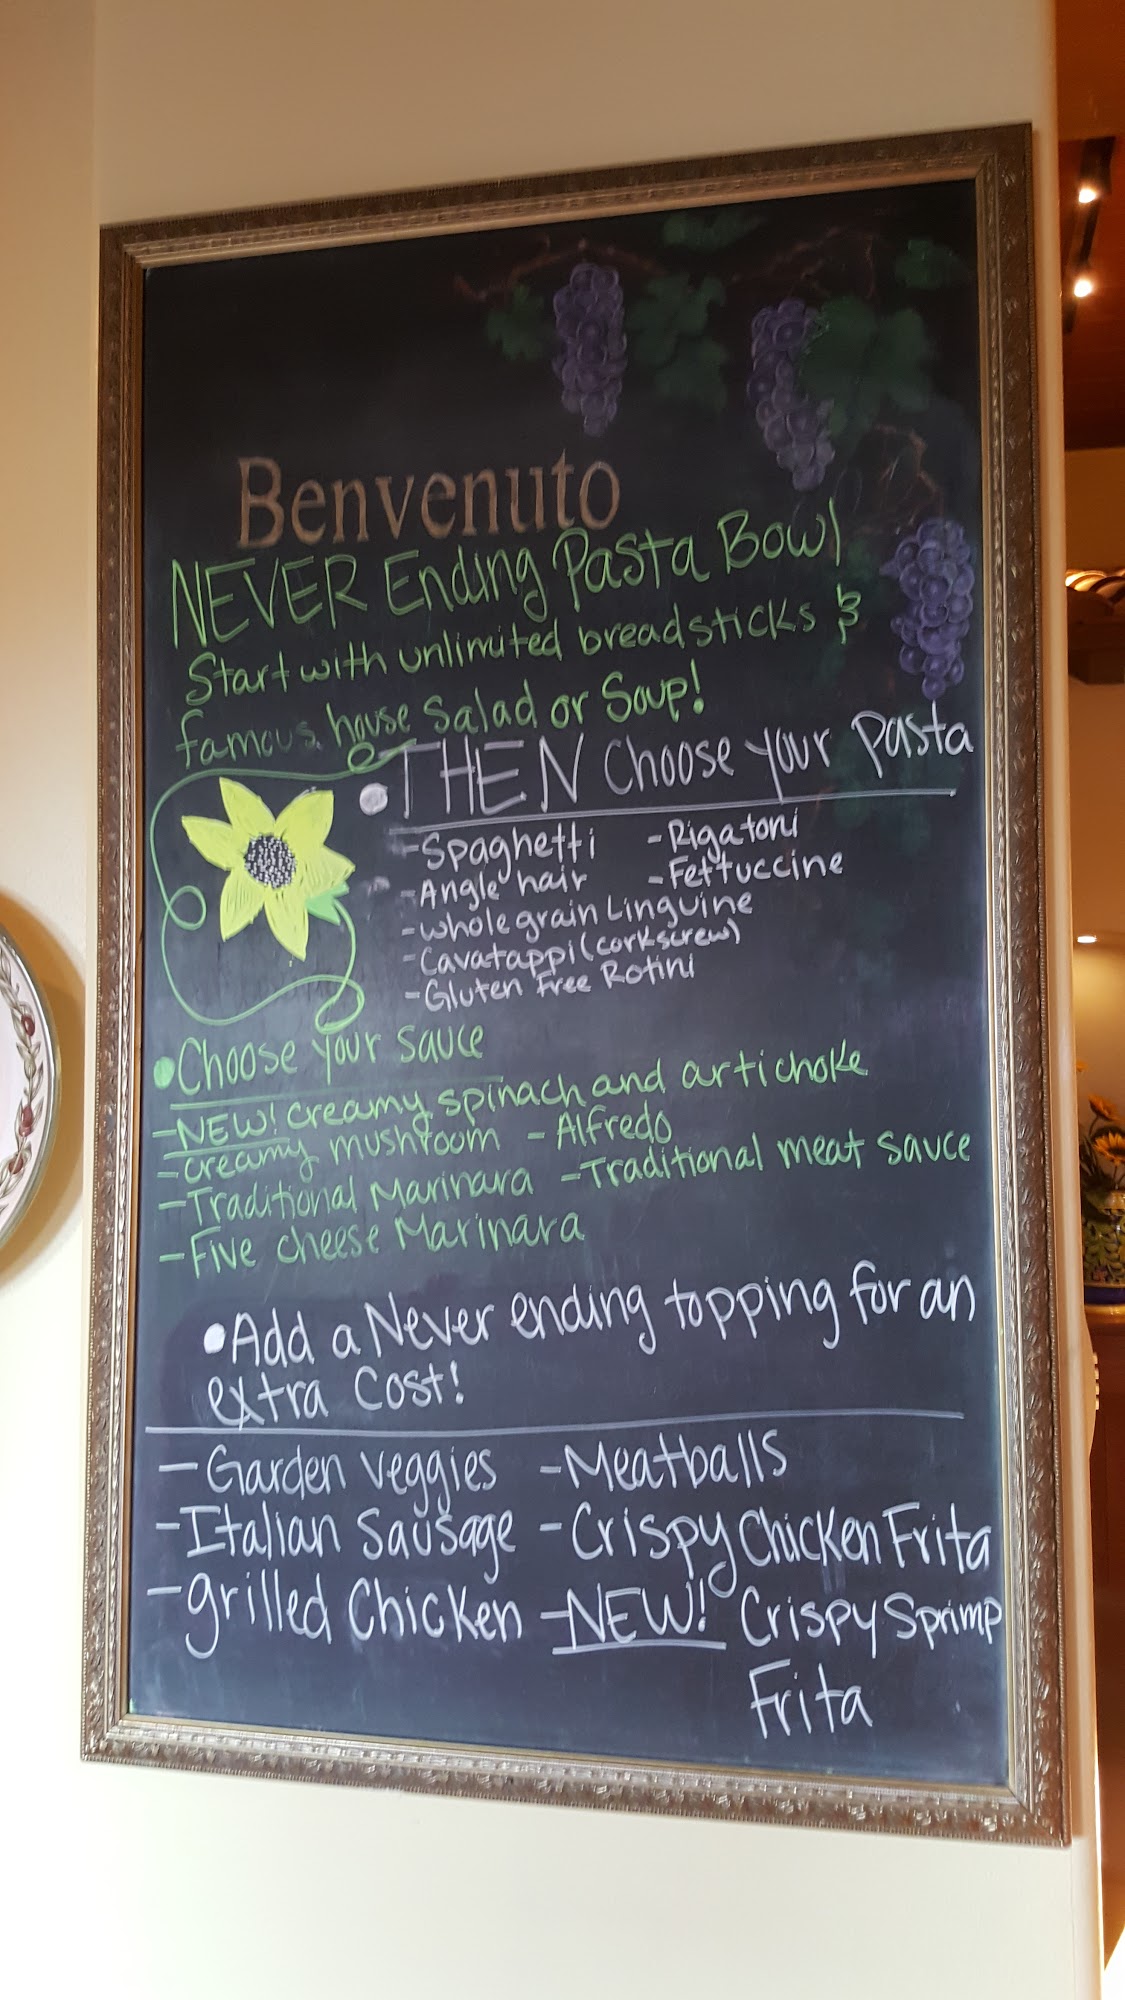 Benvenuto
NEVER Ending Pasta Bowl
Start with unlimited breadsticks &
famous house Salad or Soup!
• THEN Choose your Pasta
- Spaghetti - Rigatoni
- Angle hair - Fettuccine
- whole grain Linguine
- Cavatappi (corkscrew)
- Gluten Free Rotini
• Choose your sauce
- NEW! creamy spinach and artichoke
- creamy mushroom - Alfredo
- Traditional Marinara - Traditional meat sauce
- Five cheese Marinara
• Add a Never ending topping for an
extra Cost!
- Garden veggies - Meatballs
- Italian Sausage - Crispy Chicken Frita
- grilled Chicken - NEW! Crispy Sprimp
Frita